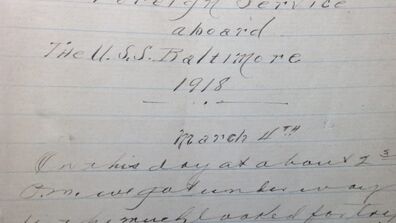 Foreign Service
aboard
The U.S.S. Baltimore
1918
March 4TH
On this day at about 2 s
P.M. we got under way
much looked for